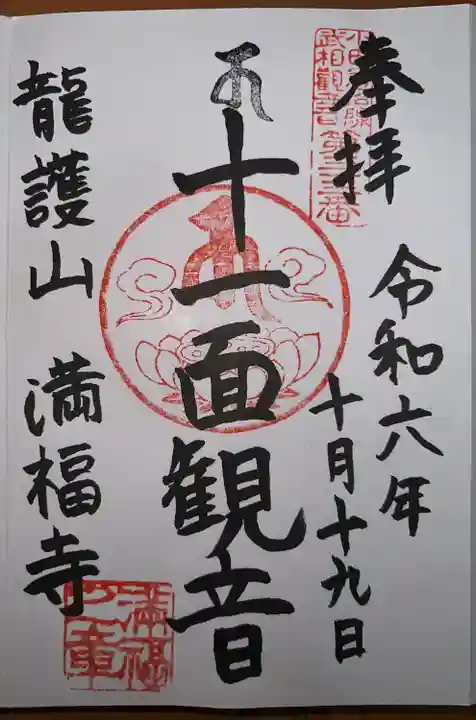 奉拝
武相観音第三三番
令和六年
十月十九日
十一面観音
龍護山 満福寺
満福
之章